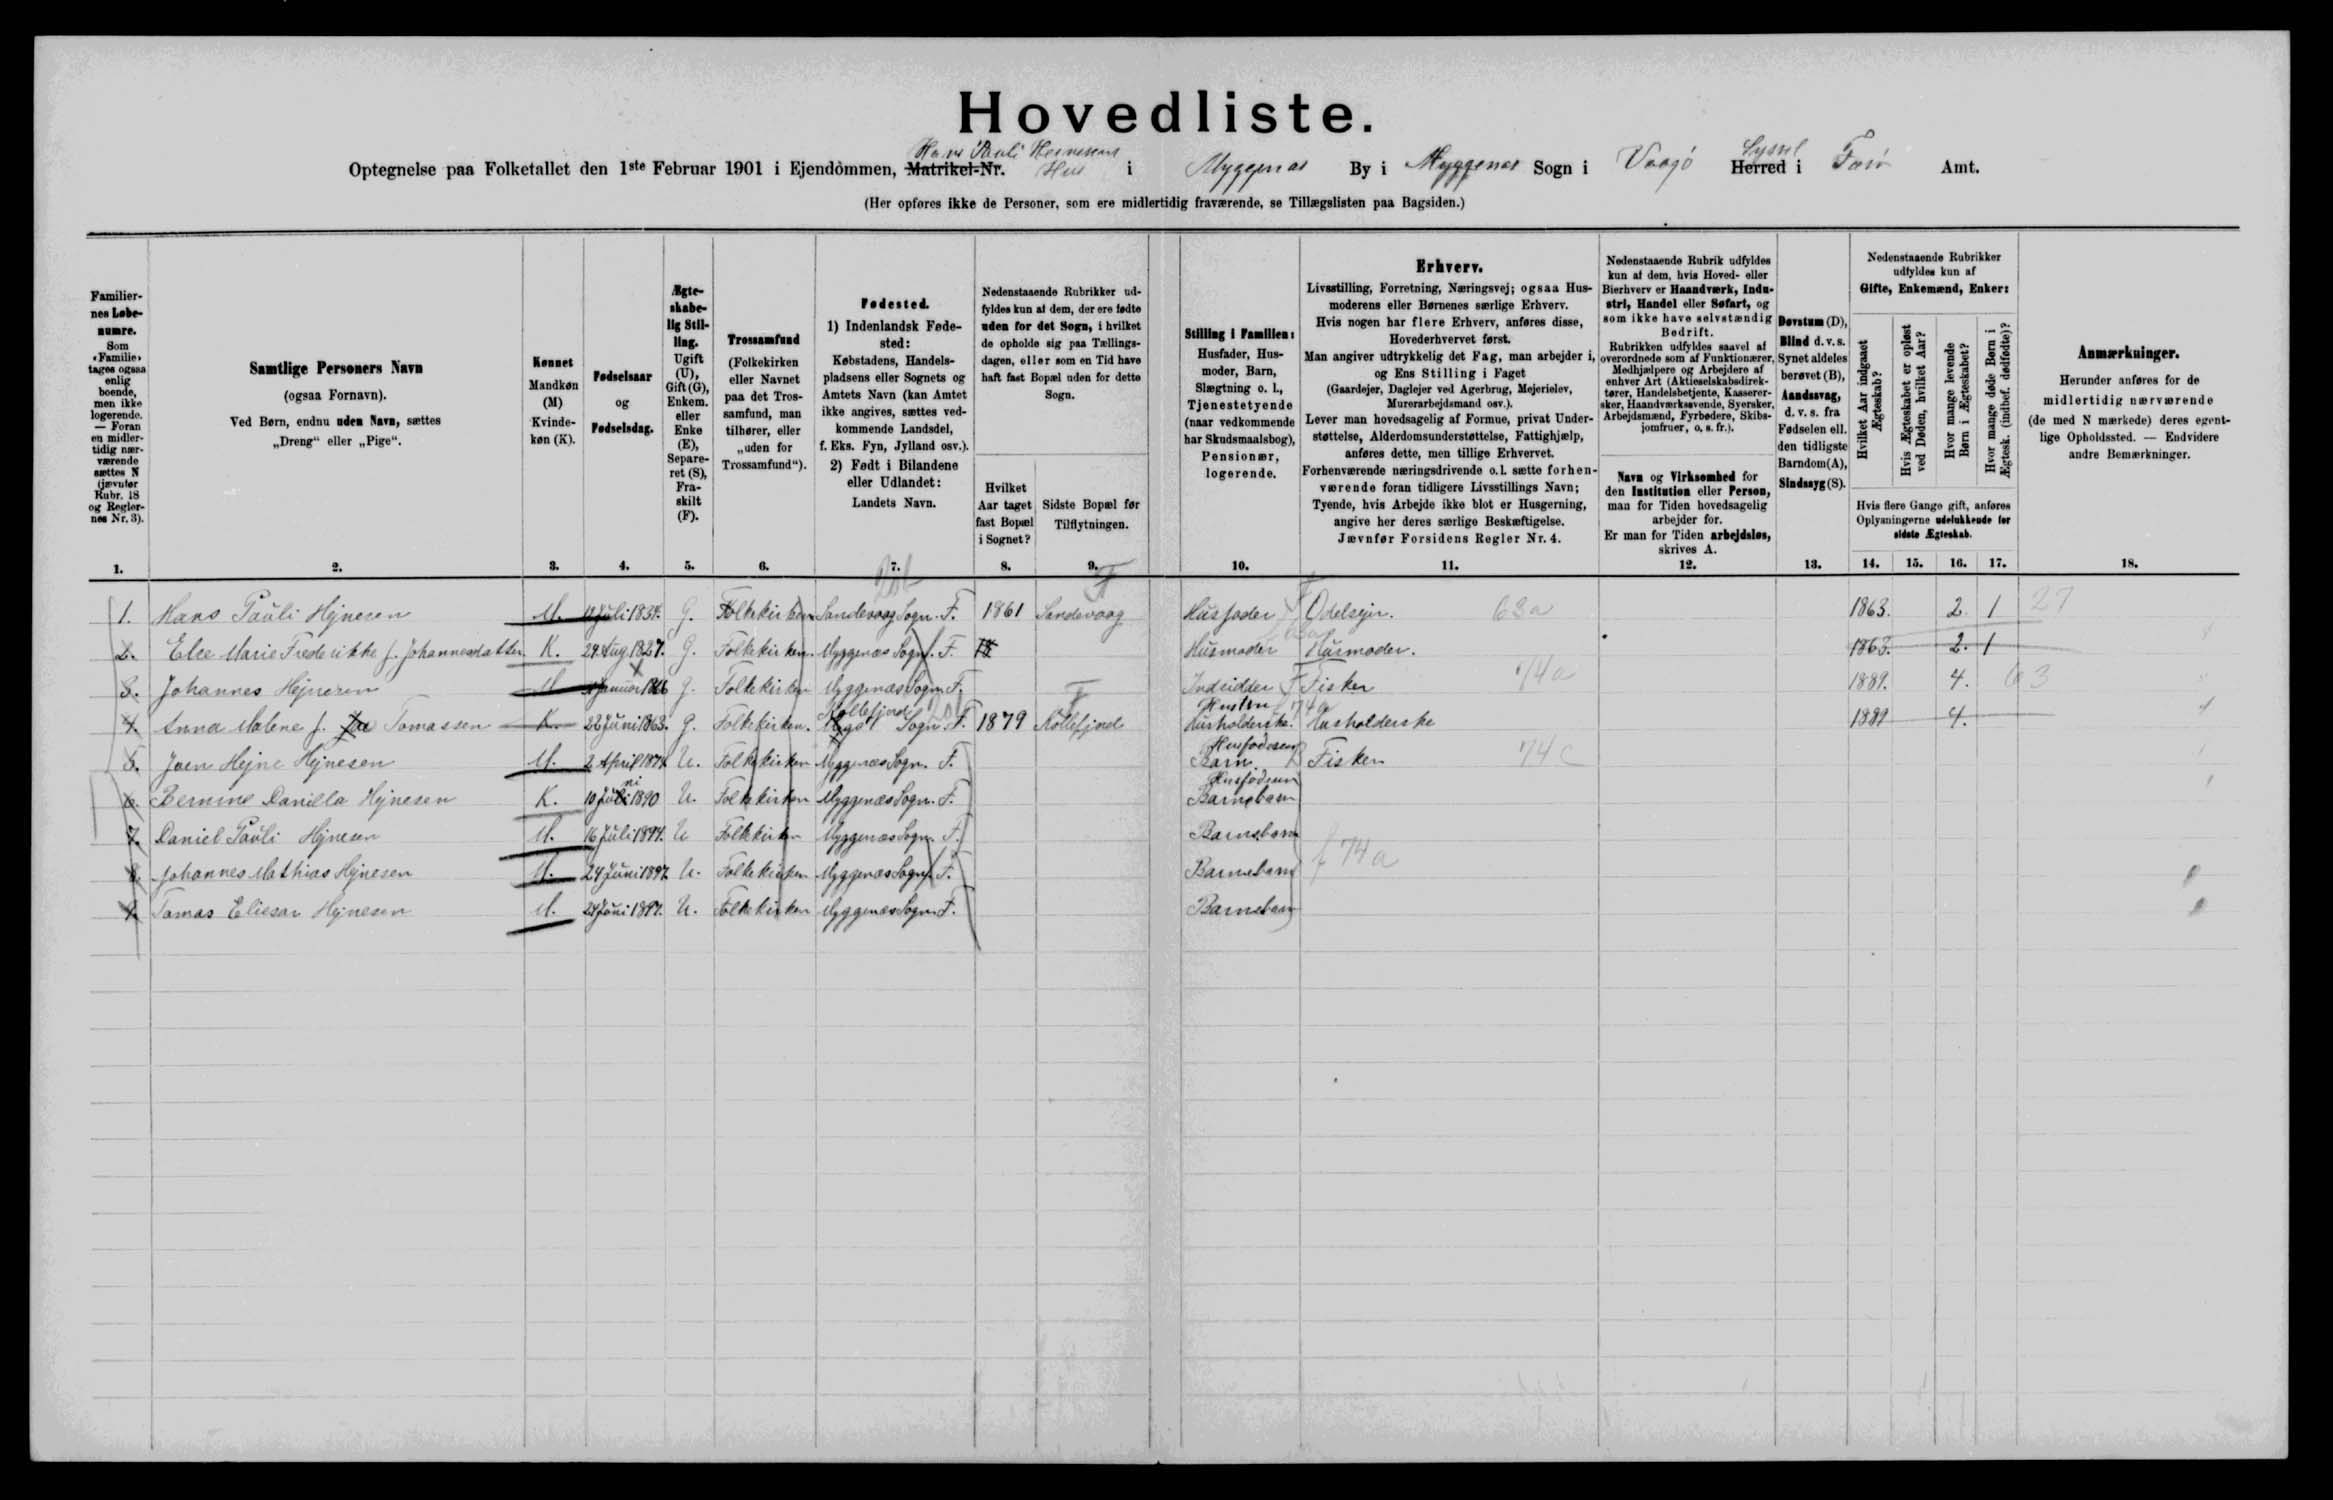 Hovedliste.
Hans Pauli Heinesens Syssel
Optegnelse paa Folketallet den 1ste Februar 1901 i Ejendommen, Matrikel-Nr. Hus i Myggenæs By i Myggenæs Sogn i Vaagö Herred i Færö Amt.
(Her opføres ikke de Personer, som ere midlertidig fraværende, se Tillægslisten paa Bagsiden.)
Familier-
nes Løbe-
numre.
Som
«Familie»
tages ogsaa
enlig
boende,
men ikke
logerende.
— Foran
en midler-
tidig nær-
værende
sættes N
(jævnfør
Rubr. 18
og Regler-
nes Nr. 3).
Samtlige Personers Navn
(ogsaa Fornavn).
Ved Børn, endnu uden Navn, sættes
„Dreng“ eller „Pige“.
Kønnet
Mandkøn
(M)
Kvinde-
køn (K).
Fødselsaar
og
Fødselsdag.
Ægte-
skabe-
lig Stil-
ling.
Ugift
(U),
Gift (G),
Enkem.
eller
Enke
(E),
Separe-
ret (S),
Fra-
skilt
(F).
Trossamfund
(Folkekirken
eller Navnet
paa det Tros-
samfund, man
tilhører, eller
„uden for
Trossamfund“).
Fødested.
1) Indenlandsk Føde-
sted:
Købstadens, Handels-
pladsens eller Sognets og
Amtets Navn (kan Amtet
ikke angives, sættes ved-
kommende Landsdel,
f. Eks. Fyn, Jylland osv.).
2) Født i Bilandene
eller Udlandet:
Landets Navn.
Nedenstaaende Rubrikker ud-
fyldes kun af dem, der ere fødte
uden for det Sogn, i hvilket
de opholde sig paa Tællings-
dagen, eller som en Tid have
haft fast Bopæl uden for dette
Sogn.
Hvilket
Aar taget
fast Bopæl
i Sognet?
Sidste Bopæl før
Tilflytningen.
Stilling i Familien:
Husfader, Hus-
moder, Barn,
Slægtning o. l.,
Tjenestetyende
(naar vedkommende
har Skudsmaalsbog),
Pensionær,
logerende.
Erhverv.
Livsstilling, Forretning, Næringsvej; ogsaa Hus-
moderens eller Børnenes særlige Erhverv.
Hvis nogen har flere Erhverv, anføres disse,
Hovederhvervet først.
Man angiver udtrykkelig det Fag, man arbejder i,
og Ens Stilling i Faget
(Gaardejer, Daglejer ved Agerbrug, Mejerielev,
Murerarbejdsmand osv.).
Lever man hovedsagelig af Formue, privat Under-
støttelse, Alderdomsunderstøttelse, Fattighjælp,
anføres dette, men tillige Erhvervet.
Forhenværende næringsdrivende o.l. sætte forhen-
værende foran tidligere Livsstillings Navn;
Tyende, hvis Arbejde ikke blot er Husgerning,
angive her deres særlige Beskæftigelse.
Jævnfør Forsidens Regler Nr. 4.
Nedenstaaende Rubrik udfyldes
kun af dem, hvis Hoved- eller
Bierhverv er Haandværk, Indu-
stri, Handel eller Søfart, og
som ikke have selvstændig
Bedrift.
Rubrikken udfyldes saavel af
overordnede som af Funktionærer,
Medhjælpere og Arbejdere af
enhver Art (Aktieselskabsdirek-
tører, Handelsbetjente, Kasserer-
sker, Haandværkssvende, Syersker,
Arbejdsmænd, Fyrbødere, Skibs-
jomfruer, o. s. fr.).
Navn og Virksomhed for
den Institution eller Person,
man for Tiden hovedsagelig
arbejder for.
Er man for Tiden arbejdsløs,
skrives A.
Døvstum (D),
Blind d. v. s.
Synet aldeles
berøvet (B),
Aandssvag,
d. v. s. fra
Fødselen ell.
den tidligste
Barndom (A),
Sindssyg (S).
Nedenstaaende Rubrikker
udfyldes kun af
Gifte, Enkemænd, Enker:
Hvilket Aar indgaaet
Ægteskab?
Hvis Ægteskabet er opløst
ved Døden, hvilket Aar?
Hvor mange levende
Børn i Ægteskabet?
Hvor mange døde Børn i
Ægtesk. (indbef. dødfødte)?
Hvis flere Gange gift, anføres
Oplysningerne udelukkende for
sidste Ægteskab.
Anmærkninger.
Herunder anføres for de
midlertidig nærværende
(de med N mærkede) deres egent-
lige Opholdssted. — Endvidere
andre Bemærkninger.
1. 2. 3. 4. 5. 6. 7. 8. 9. 10. 11. 12. 13. 14. 15. 16. 17. 18.
1. Hans Pauli Hejnesen M. Juli 1834. G. Folkekirken Sandevaag Sogn. F. 1861 Sandevaag Husfader Odelsejer. 63a 1863. 2. 1 27
2. Else Marie Frederikke f. Johannesdatter K. 29. Aug 1827. G. Folkekirken. Myggenæs Sogn. F. 18 Husmoder Husmoder. 1863. 2. 1
3. Johannes Hejnesen M Januar 1866 G. Folkekirken Myggenæs Sogn F. Indsidder Fisker 74a 1889. 4. 63
Kollefjord Hustru 74a
4. Anna Malene f. Tomassen K. 22 Juni 1863. G. Folkekirken. Sogn. F. 1879 Kollefjord Husholderske. Husholderske 1889 4.
Husfaderens
5. Joen Hejne Hejnesen M. 2 April 1874. U. Folkekirken Myggenæs Sogn. F. Barn. Fisker 74c
ni Husfaderens
6. Bernine Daniella Hejnesen K. 10 Juli 1890 U. Folkekirken Myggenæs Sogn. F. Barnebarn
7. Daniel Pauli Hejnesen M. 16 Juli 1894. U Folkekirken Myggenæs Sogn. F. Barnebarn
74a
8. Johannes Mathias Hejnesen M. 24 Juni 1897. U. Folkekirken Myggenæs Sogn. F. Barnebarn
9. Tomas Eliesar Hejnesen M. 24 Juni 1897. U. Folkekirken Myggenæs Sogn. F. Barnebarn